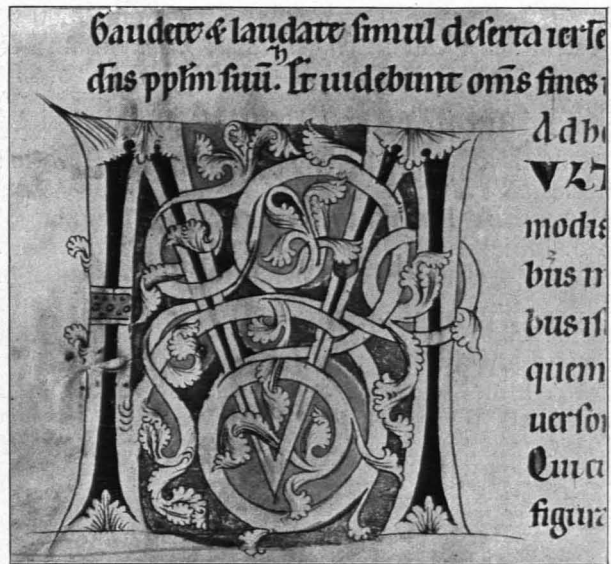 Gaudete & laudate simul deserta ierſe
dn̄s ppl̄m suū. Et uidebunt om̄s fines
Ad h
M
VLT
modis
bus in
bus iſ
quem
uerſo
Qui c
figur